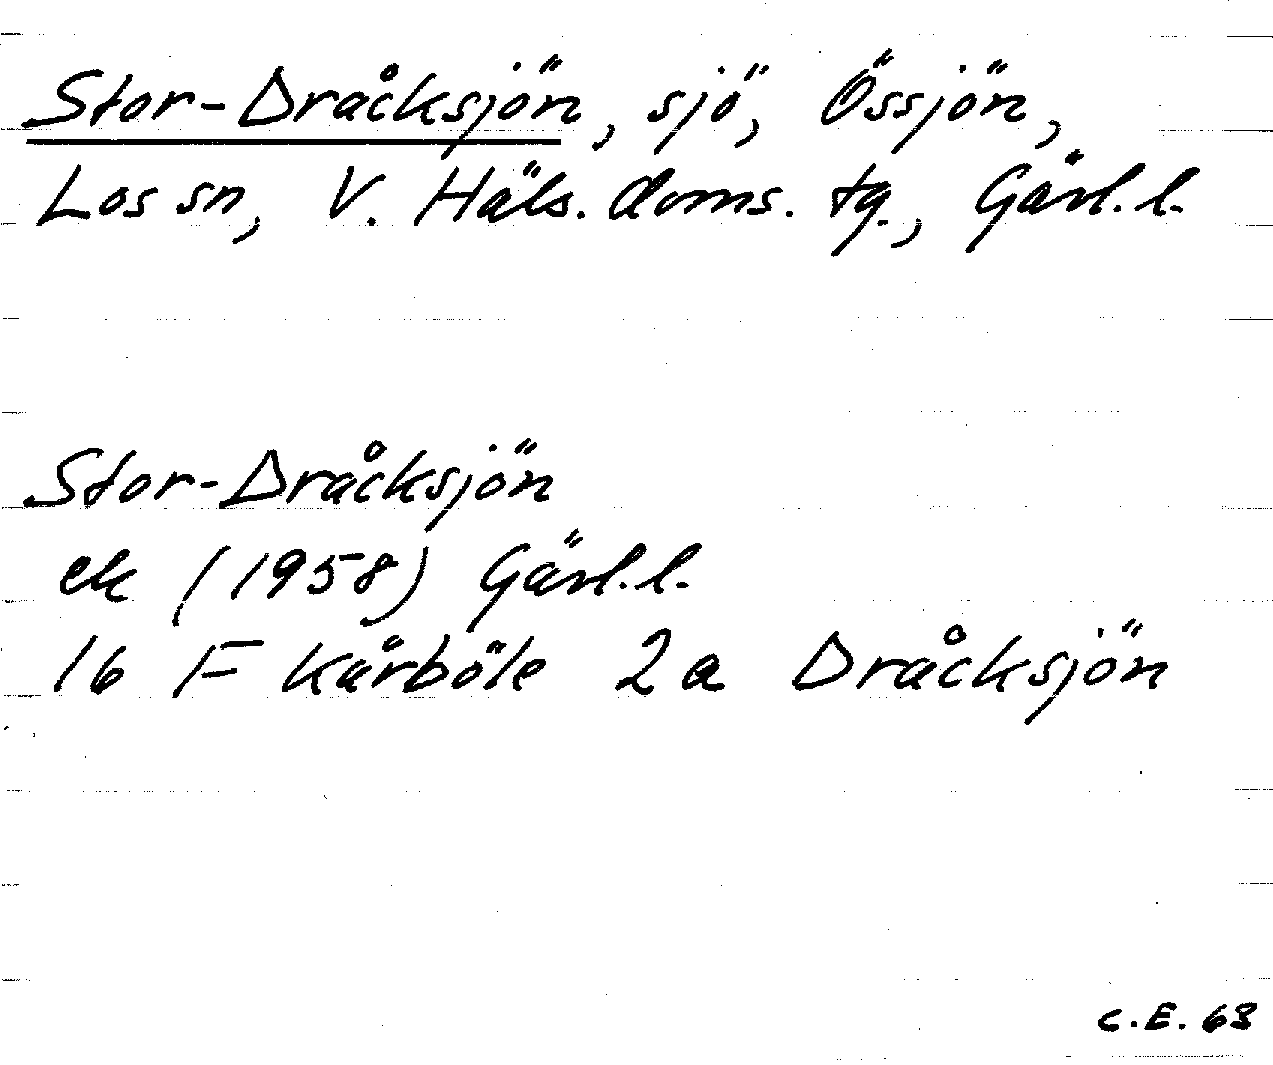 Stor-Dråcksjön, sjö, Össjön,
Los sn, V. Häls. doms. tg., Gävl. l.
Stor-Dråcksjön
ek (1958) Gävl. l.
16 F Kårböle 2a Dråcksjön
C.E. 63